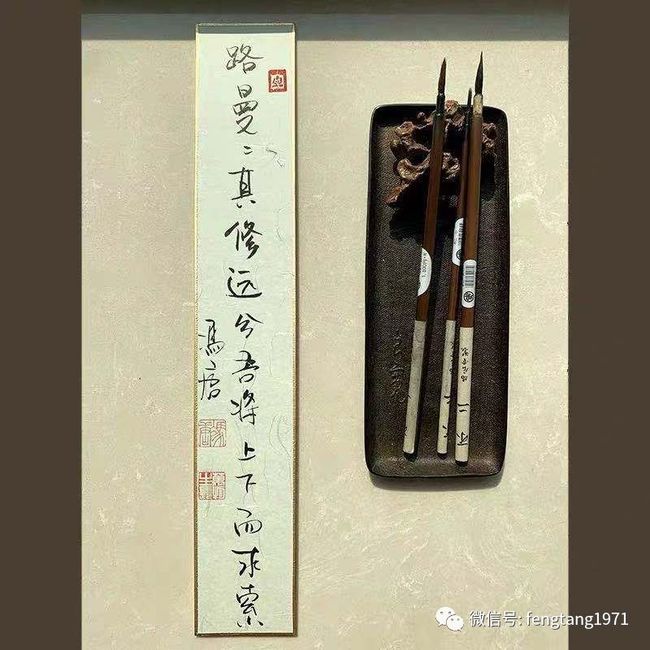 路曼〻其修远兮吾将上下而求索
馮唐
微信号: fengtang1971